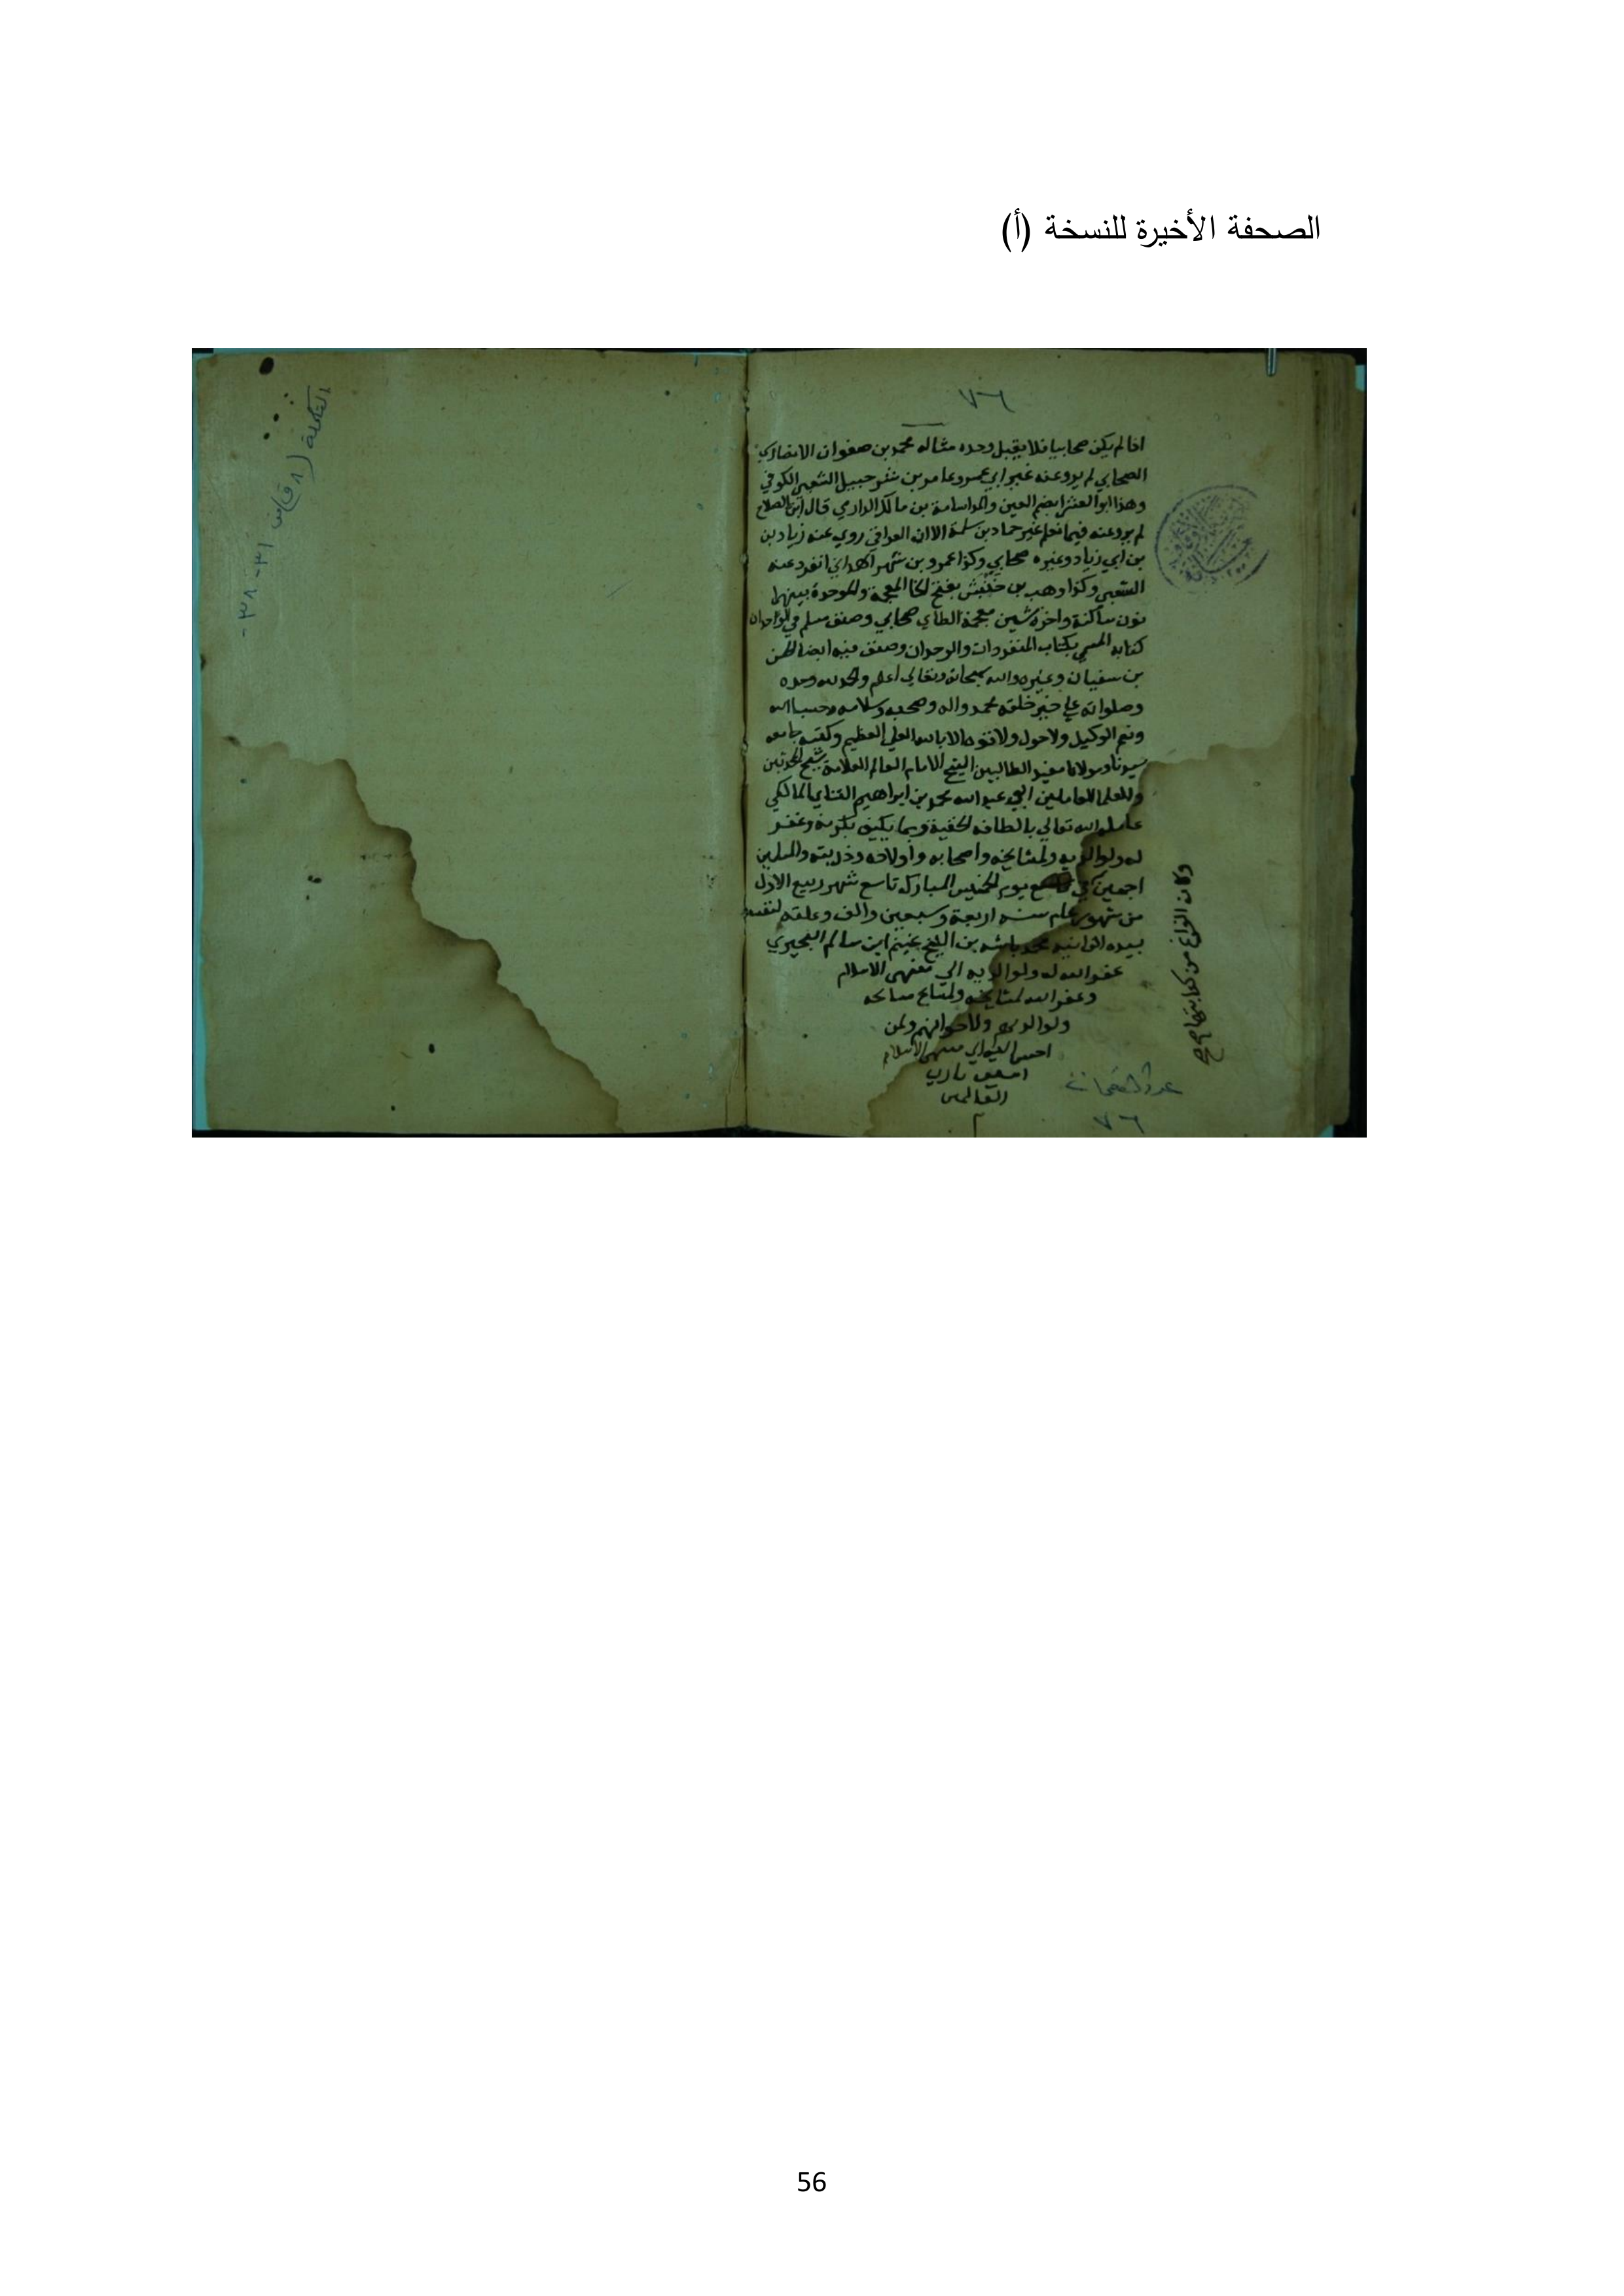 الصحفة الأخيرة للنسخة (أ)
٧٦
اذا لم يكن صحابيا فلا يقبل وحده مثاله محمد بن صفوان الانصاري
الصحابي لم يرو عنه غير ابي عمرو عامر بن شرحبيل الشعبي الكوفي
وهذا ابو العشرا بضم العين والد اسامة بن مالك الدارمي قال ابن الصلاح
لم يرو عنه فيما نعلم غير حماد بن سلمة الا ان العراقي روي عنه زياد بن
بن ابي زياد وغيره صحابي وكذا عمرو بن شهر الهمداني انفرد عنه
الشعبي وكذا وهب بن خنبش بفتح الخا المعجمة والموحدة بينهما
نون ساكنة واخره شين معجمة الطاي صحابي وصنف مسلم في الواحدان
كتابه المسمي بكتاب المنفردات والوحدان وصنف فيه ايضا الحسن
بن سفيان وغيره والله سبحانه وتعالي اعلم والحمد لله وحده
وصلواته علي خير خلقه محمد واله وصحبه وسلامه وحسبنا الله
ونعم الوكيل ولا حول ولا قوة الا بالله العلي العظيم وكتبه جامعه
سيدنا ومولانا مفيد الطالبين الشيخ الامام العالم العلامة شيخ المحدثين
والعلما العاملين ابي عبد الله محمد بن ابراهيم التتاي المالكي
عامله الله تعالي بالطافه الخفية وبما يليق بكرمه وغفر
له ولوالديه ولمشايخه واصحابه واولاده وذريته والمسلمين
اجمعين في يوم الخميس المبارك تاسع شهر ربيع الاول
من شهور عام سنه اربعة وسبعين والف وعلقه لنفسه
بيده الفانيه محمد بن الشيخ غنيم ابن سالم البحيري
غفر الله له ولوالديه الي منتهى الاسلام
وغفر الله لمشايخه ولمشايخ مشايخه
ولوالديهم ولاخوانهم ولمن
احسن اليه الي منتهى الاسلام
امين يارب
العالمين
وكان الفراغ من كتابتها
عدد الصفحات
٧٦
التكملة (٨ ق) من ٣١ - ٣٨ -
56